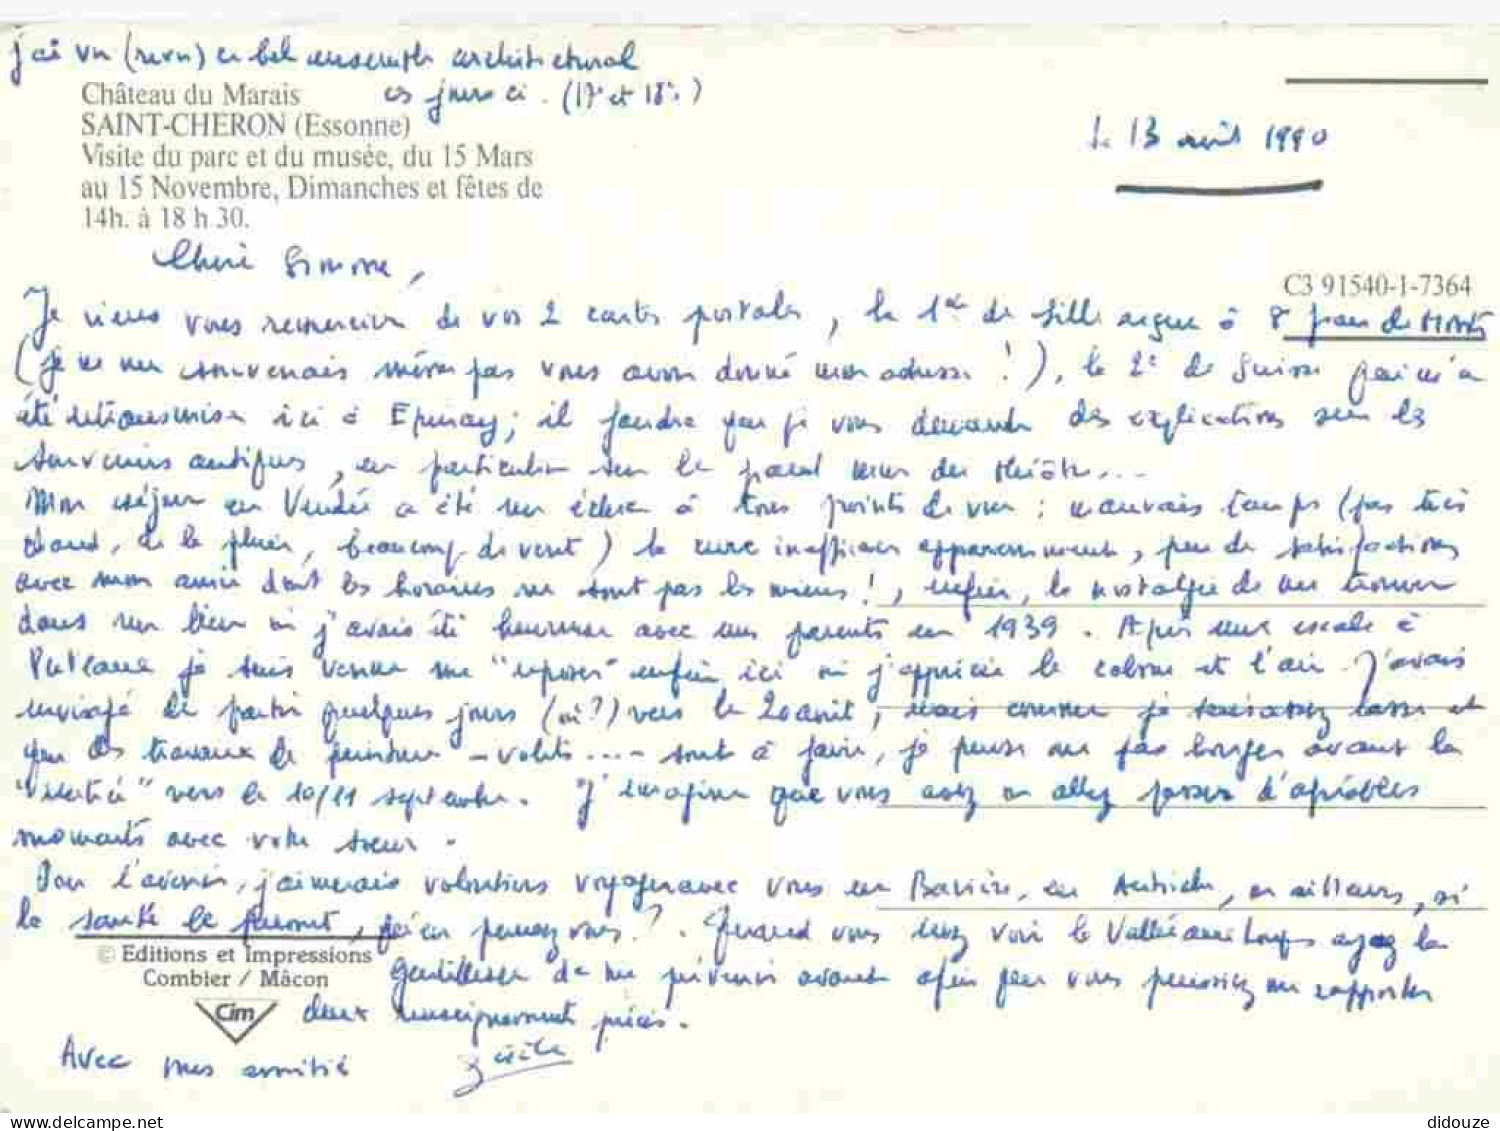 j'ai vu (revu) ce bel ensemble architectural
ces jours ci. (17e et 18e)
Château du Marais
SAINT-CHERON (Essonne)
Visite du parc et du musée, du 15 Mars
au 15 Novembre, Dimanches et fêtes de
14h. à 18 h 30.
le 13 août 1990
C3 91540-1-7364
Chère Simone,
Je viens vous remercier de vos 2 cartes postales, la 1ère de Lille reçue à
(je ne me souvenais même pas vous avoir donné mon adresse !), la 2e de Suisse qui m'a
été retransmise ici à Epinay; il faudra que je vous demande des explications sur les
souvenirs antiques, en particulier sur le grand mur du théâtre...
Mon séjour en Vendée a été un échec à tous points de vue : mauvais temps (pas très
chaud, de la pluie, beaucoup de vent) la cure inefficace apparemment, peu de satisfactions
avec mon amie dont les horaires ne sont pas les miens !, enfin, la nostalgie de me trouver
dans un lieu où j'avais été heureuse avec mes parents en 1939. Après une escale à
Puteaux je suis venue me "reposer" enfin ici où j'apprécie le calme et l'air. J'avais
envisagé de partir quelques jours (où ?) vers le 20 août, mais comme je suis assez lasse et
que des travaux de peinture - volets...- sont à faire, je pense ne pas bouger avant la
vers le 10/11 septembre. J'imagine que vous avez ou allez passer d'agréables
moments avec votre soeur.
Pour l'avenir, j'aimerais volontiers voyager avec vous en Bavière, en Autriche, ou ailleurs, si
la santé le permet, qu'en pensez vous ?. Quand vous irez voir la Vallée aux Loups ayez la
gentillesse de me prévenir avant afin que vous puissiez me rapporter
deux renseignements précis.
© Editions et Impressions
Combier / Mâcon
Cim
Avec mes amitiés
didouze